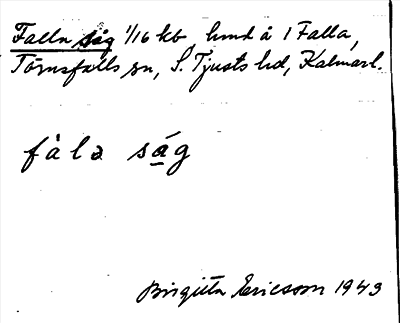 Falla såg 1/16 kb hmd å 1 Falla,
Törnsfalls sn, S. Tjusts hd, Kalmarl.
fàla såg
Birgitta Ericsson 1943